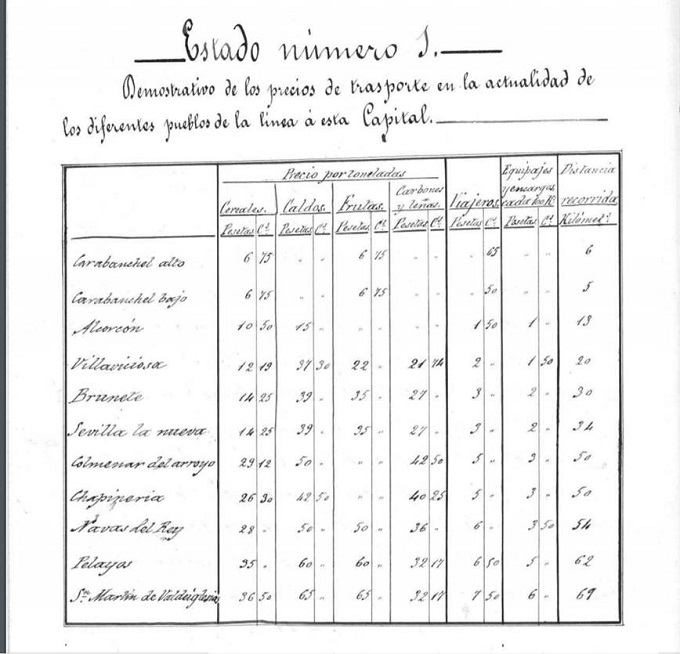 Estado número 1.
Demostrativo de los precios de trasporte en la actualidad de
los diferentes pueblos de la linea á esta Capital.
Precio por toneladas
Cereales. Caldos. Frutas. Carbones y leñas. Viajeros. Equipajes y encargos cada 100 Kº Distancia recorrida
Pesetas Cs Pesetas Cs Pesetas Cs Pesetas Cs Pesetas Cs Pesetas Cs Kilómets
Carabanchel alto 6 75 " " 6 75 " " " 65 " " 6
Carabanchel bajo 6 75 " " 6 75 " " " 50 " " 5
Alcorcón 10 50 15 " " " " " 1 50 1 " 13
Villaviciosa 12 19 37 30 22 " 21 74 2 " 1 50 20
Brunete 14 25 39 " 35 " 27 " 3 " 2 " 30
Sevilla la nueva 14 25 39 " 35 " 27 " 3 " 2 " 34
Colmenar del arroyo 29 12 50 " " " 42 50 5 " 3 " 50
Chapineria 26 30 42 50 " " 40 25 5 " 3 " 50
Navas del Rey 28 " 50 " 50 " 36 " 6 " 3 50 54
Pelayos 35 " 60 " 60 " 32 17 6 50 5 " 62
Sn Martin de Valdeiglesias 36 50 65 " 65 " 32 17 7 50 6 " 69